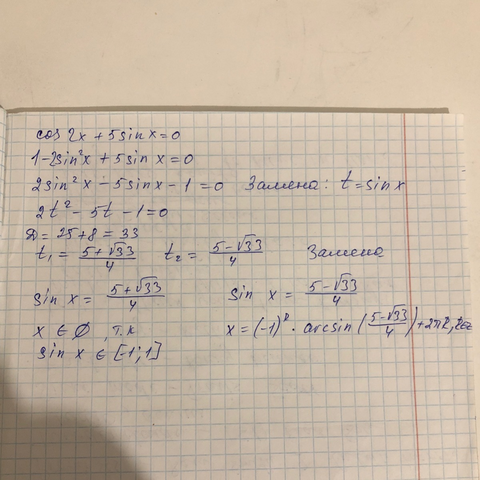 cos 2x + 5 sin x = 0
1-2sin²x + 5 sin x = 0
2sin²x - 5sinx - 1 = 0 Замена: t = sin x
2t² - 5t - 1 = 0
D = 25+8 = 33
t₁ = (5+√33)/4 t₂ = (5-√33)/4 Замена
sin x = (5+√33)/4 sin x = (5-√33)/4
x ∈ ∅, т.к x = (-1)ᵏ · arcsin((5-√33)/4) + 2πk, k∈Z
sin x ∈ [-1;1]